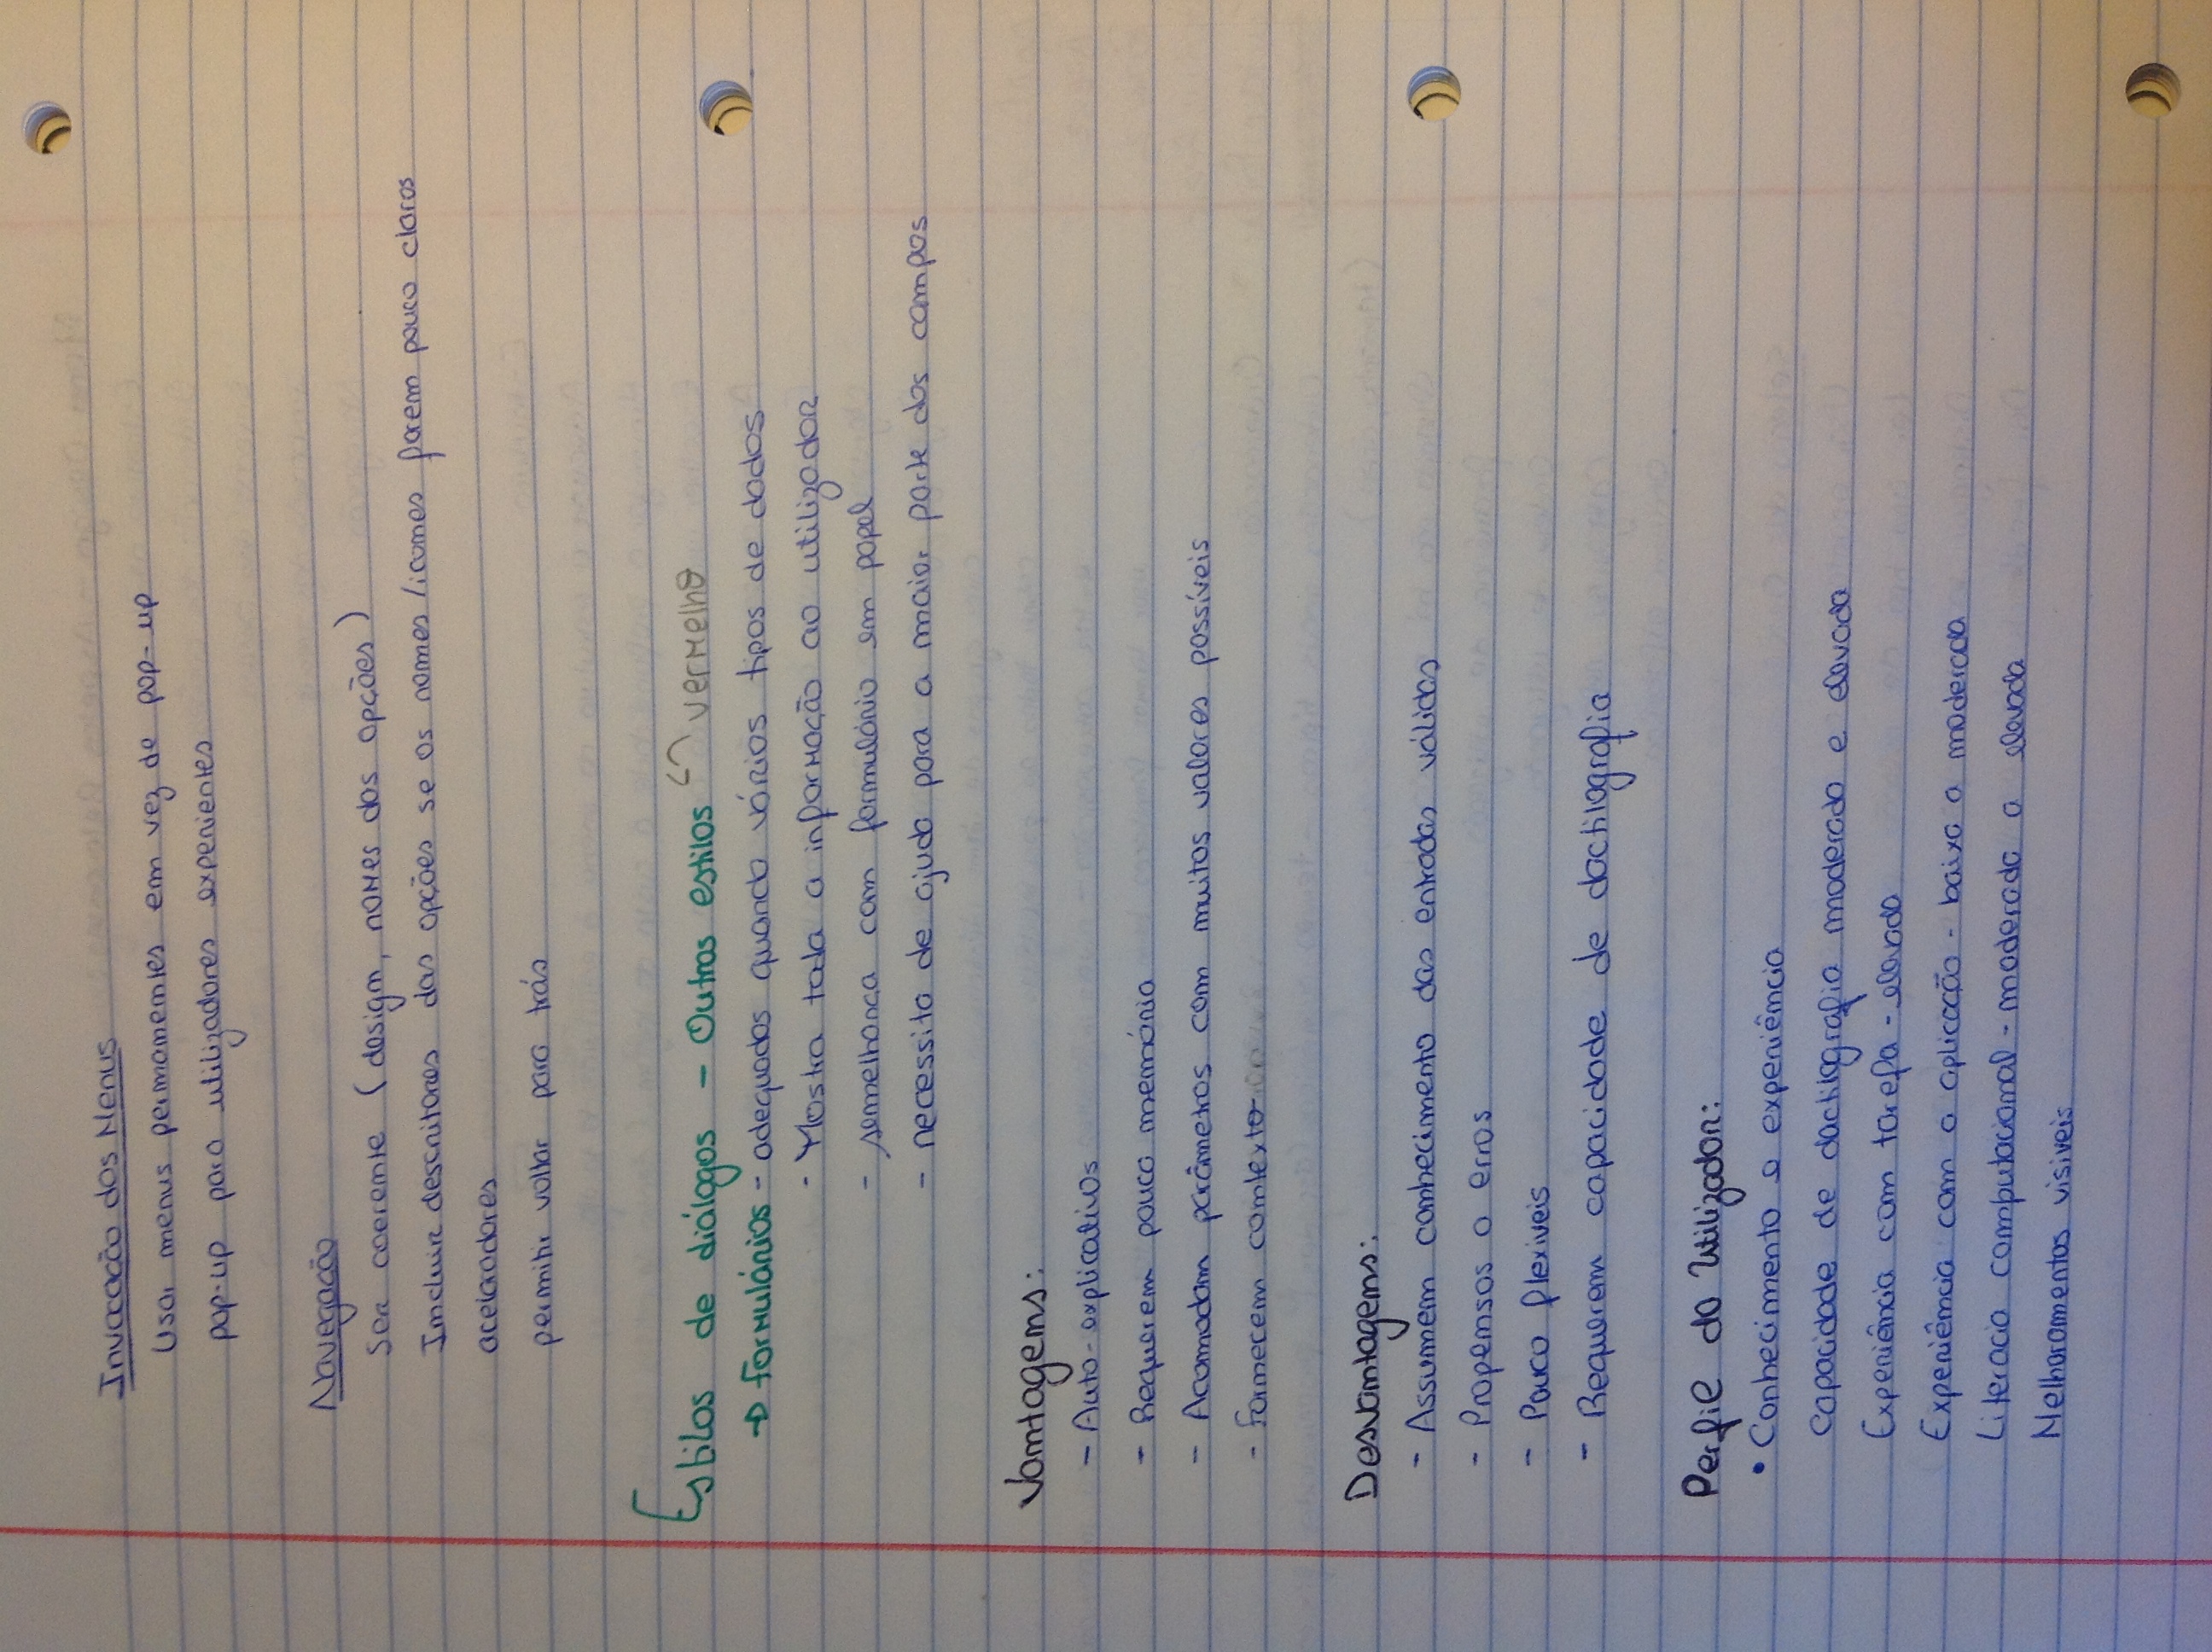 Invocação dos Menus
Usar menus permanentes em vez de pop-up
pop-up para utilizadores experientes
Navegação
Ser coerente (design, nomes das opções)
Incluir descritores das opções se os nomes/icones forem pouco claros
aceleradores
permitir voltar para trás
Estilos de diálogos - Outros estilos vermelho
→ formulários - adequados quando vários tipos de dados
- Mostra toda a informação ao utilizador
- semelhança com formulário em papel
- necessita de ajuda para a maior parte dos campos
Vantagens:
- Auto-explicativos
- Requerem pouca memória
- Acomodam parâmetros com muitos valores possíveis
- fornecem contexto
Desvantagens:
- Assumem conhecimento das entradas válidas
- Propensos a erros
- Pouco flexiveis
- Requerem capacidade de dactilografia
Perfil do Utilizador:
• Conhecimento e experiência
Capacidade de dactilografia moderada e elevada
Experiência com tarefa - elevada
Experiência com a aplicação - baixa a moderada
Literacia computacional - moderada a elevada
Melhoramentos visiveis